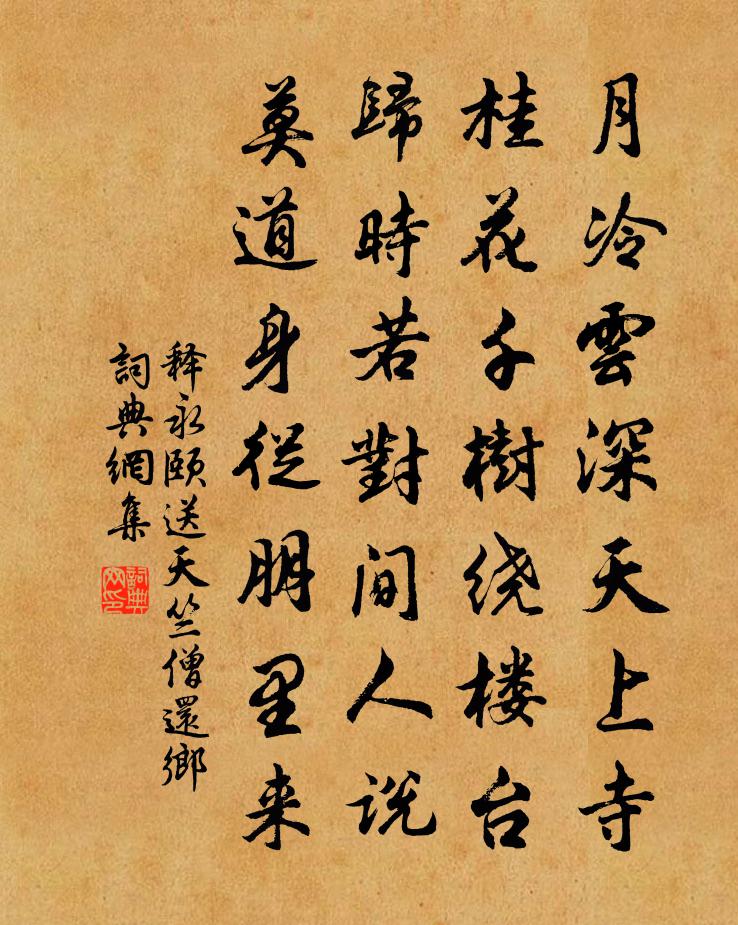 月冷雲深天上寺
桂花千樹绕楼台
歸時若對间人说
莫道身從朋里来
释永颐送天竺僧還鄉
詞典網集
詞典网印